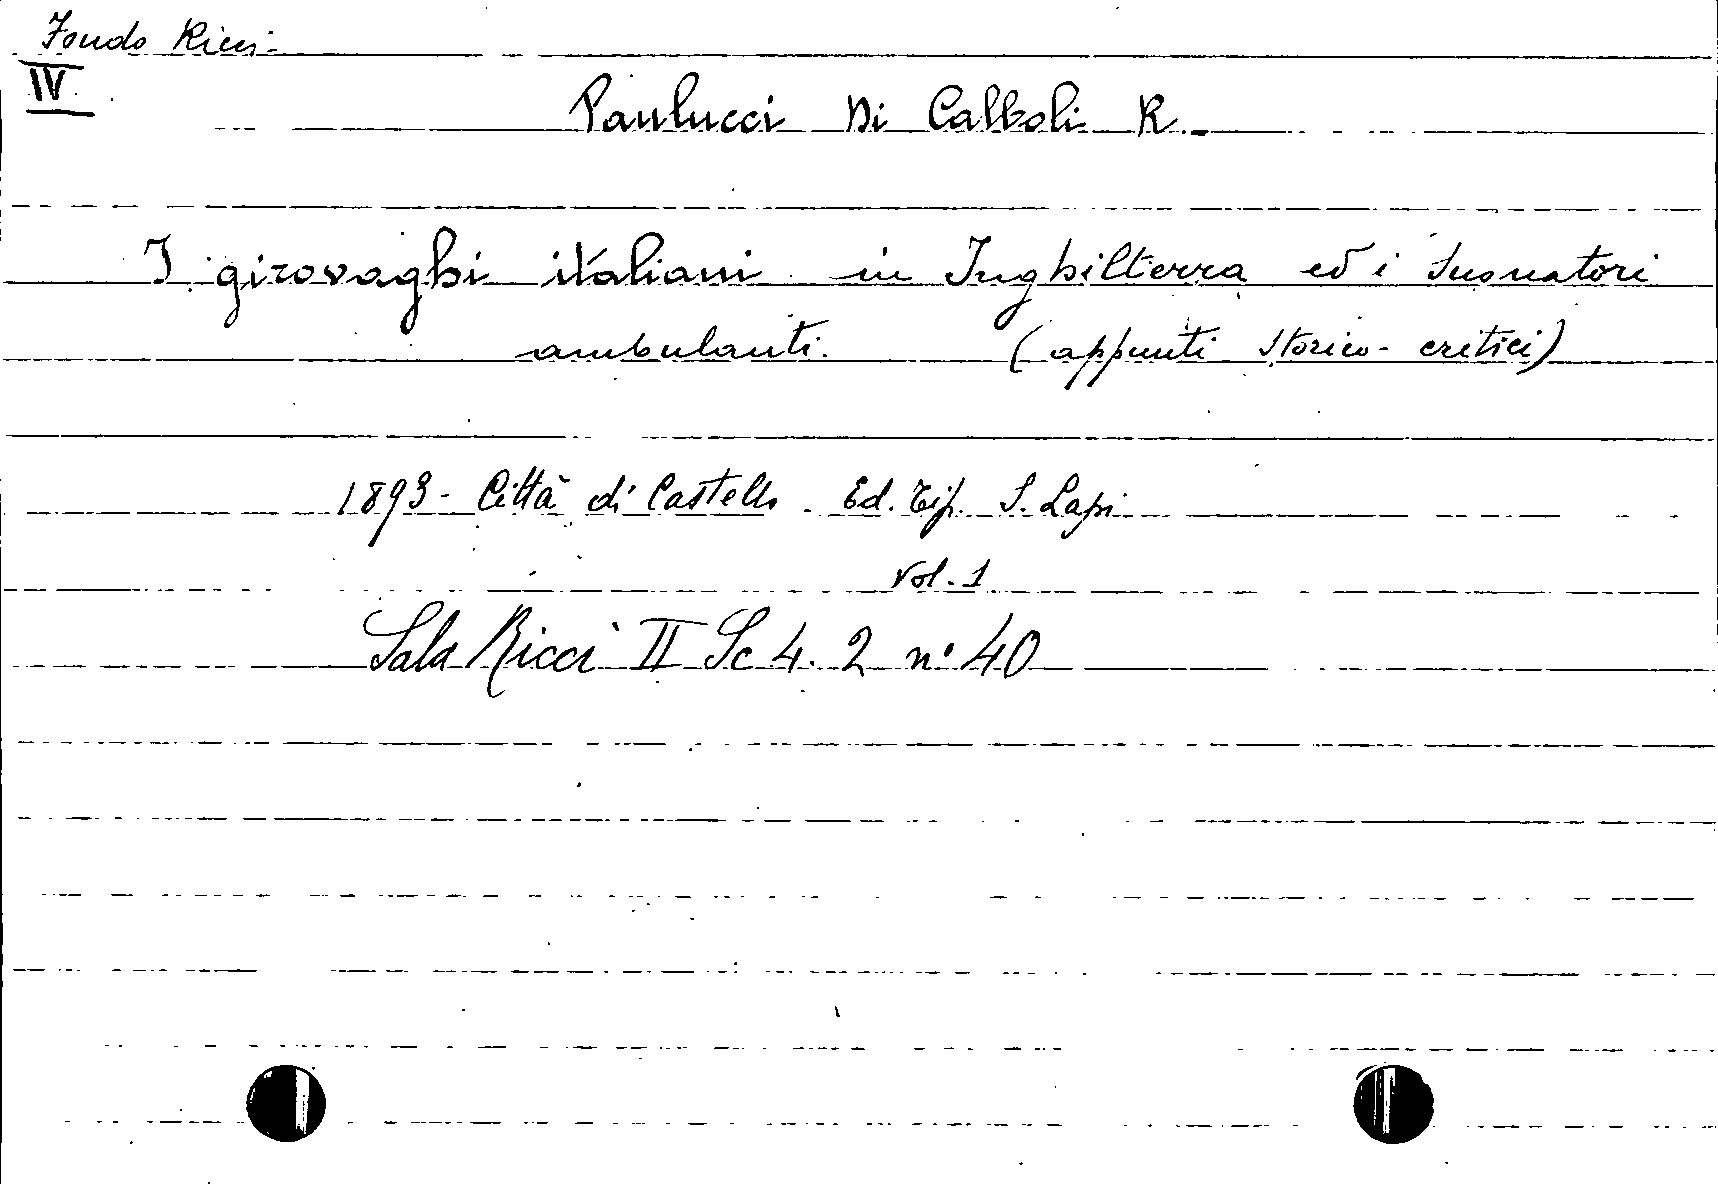 Fondo Ricci-
IV
Paulucci Di Calboli R.
I girovaghi italiani in Inghilterra ed i suonatori
ambulanti. (appunti storico-critici)
1893- Città di Castello. Ed. Tip. S. Lapi
Vol. 1
Sala Ricci II Sc 4. 2 n° 40